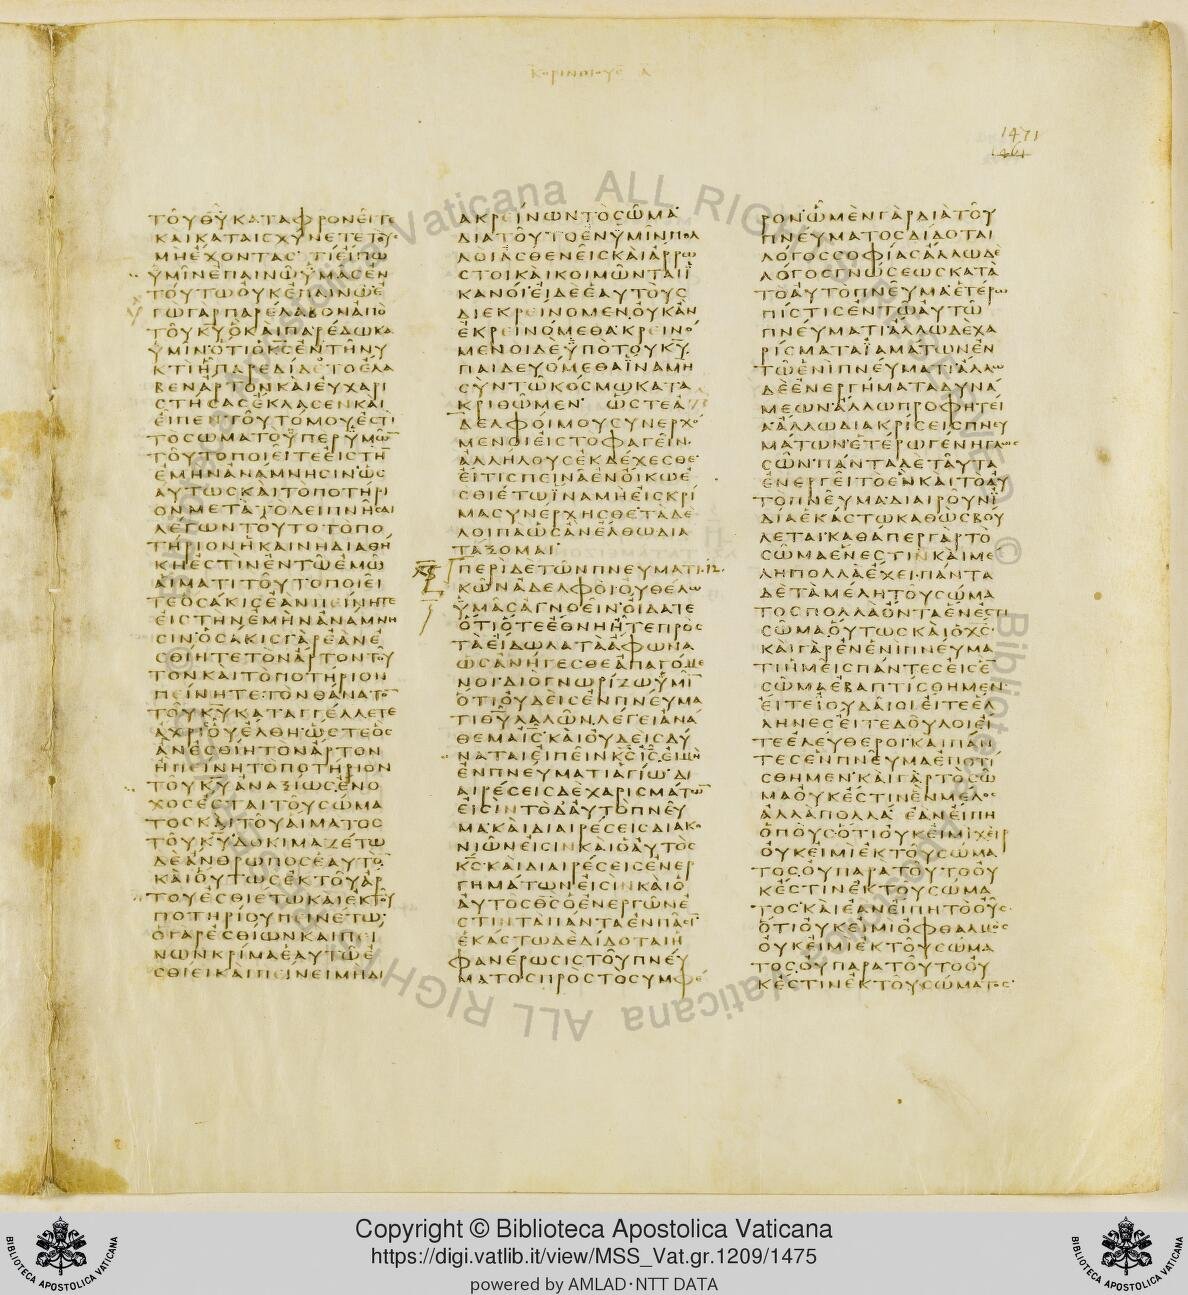 ΚΟΡΙΝΘΙΟΥΣ Α
1471
ΤΟΥ ΘΥ ΚΑΤΑΦΡΟΝΕΙΤΕ
ΚΑΙ ΚΑΤΑΙΣΧΥΝΕΤΕ ΤΟΥΣ
ΜΗ ΕΧΟΝΤΑΣ ΤΙ ΕΙΠΩ
ΥΜΙΝ ΕΠΑΙΝΩ ΥΜΑΣ ΕΝ
ΤΟΥΤΩ ΟΥΚ ΕΠΑΙΝΩ Ε
ΓΩ ΓΑΡ ΠΑΡΕΛΑΒΟΝ ΑΠΟ
ΤΟΥ ΚΥ Ο ΚΑΙ ΠΑΡΕΔΩΚΑ
ΥΜΙΝ ΟΤΙ Ο ΚΣ ΕΝ ΤΗ ΝΥ
ΚΤΙ Η ΠΑΡΕΔΙΔΕΤΟ ΕΛΑ
ΒΕΝ ΑΡΤΟΝ ΚΑΙ ΕΥΧΑΡΙ
ΣΤΗΣΑΣ ΕΚΛΑΣΕΝ ΚΑΙ
ΕΙΠΕΝ ΤΟΥΤΟ ΜΟΥ ΕΣΤΙ
ΤΟ ΣΩΜΑ ΤΟ ΥΠΕΡ ΥΜΩ
ΤΟΥΤΟ ΠΟΙΕΙΤΕ ΕΙΣ ΤΗ
ΕΜΗΝ ΑΝΑΜΝΗΣΙΝ ΩΣ
ΑΥΤΩΣ ΚΑΙ ΤΟ ΠΟΤΗΡΙ
ΟΝ ΜΕΤΑ ΤΟ ΔΕΙΠΝΗΣΑΙ
ΛΕΓΩΝ ΤΟΥΤΟ ΤΟ ΠΟ
ΤΗΡΙΟΝ Η ΚΑΙΝΗ ΔΙΑΘΗ
ΚΗ ΕΣΤΙΝ ΕΝ ΤΩ ΕΜΩ
ΑΙΜΑΤΙ ΤΟΥΤΟ ΠΟΙΕΙ
ΤΕ ΟΣΑΚΙΣ ΕΑΝ ΠΕΙΝΗΤΕ
ΕΙΣ ΤΗΝ ΕΜΗΝ ΑΝΑΜΝΗ
ΣΙΝ ΟΣΑΚΙΣ ΓΑΡ ΕΑΝ Ε
ΣΘΙΗΤΕ ΤΟΝ ΑΡΤΟΝ ΤΟΥ
ΤΟΝ ΚΑΙ ΤΟ ΠΟΤΗΡΙΟΝ
ΠΕΙΝΗΤΕ ΤΟΝ ΘΑΝΑΤΟ
ΤΟΥ ΚΥ ΚΑΤΑΓΓΕΛΛΕΤΕ
ΑΧΡΙ ΟΥ ΕΛΘΗ ΩΣΤΕ ΟΣ
ΑΝ ΕΣΘΙΗ ΤΟΝ ΑΡΤΟΝ
Η ΠΕΙΝΗ ΤΟ ΠΟΤΗΡΙΟΝ
ΤΟΥ ΚΥ ΑΝΑΞΙΩΣ ΕΝΟ
ΧΟΣ ΕΣΤΑΙ ΤΟΥ ΣΩΜΑ
ΤΟΣ ΚΑΙ ΤΟΥ ΑΙΜΑΤΟΣ
ΤΟΥ ΚΥ ΔΟΚΙΜΑΖΕΤΩ
ΔΕ ΑΝΘΡΩΠΟΣ ΕΑΥΤΟ
ΚΑΙ ΟΥΤΩΣ ΕΚ ΤΟΥ ΑΡ
ΤΟΥ ΕΣΘΙΕΤΩ ΚΑΙ ΕΚ ΤΟΥ
ΠΟΤΗΡΙΟΥ ΠΕΙΝΕΤΩ
Ο ΓΑΡ ΕΣΘΙΩΝ ΚΑΙ ΠΕΙ
ΝΩΝ ΚΡΙΜΑ ΕΑΥΤΩ Ε
ΣΘΙΕΙ ΚΑΙ ΠΕΙΝΕΙ ΜΗ ΔΙ
ΑΚΡΕΙΝΩΝ ΤΟ ΣΩΜΑ
ΔΙΑ ΤΟΥΤΟ ΕΝ ΥΜΙΝ ΠΟΛ
ΛΟΙ ΑΣΘΕΝΕΙΣ ΚΑΙ ΑΡΡΩ
ΣΤΟΙ ΚΑΙ ΚΟΙΜΩΝΤΑΙ Ι
ΚΑΝΟΙ ΕΙ ΔΕ ΕΑΥΤΟΥΣ
ΔΙΕΚΡΕΙΝΟΜΕΝ ΟΥΚ ΑΝ
ΕΚΡΕΙΝΟΜΕΘΑ ΚΡΕΙΝΟ
ΜΕΝΟΙ ΔΕ ΥΠΟ ΤΟΥ ΚΥ
ΠΑΙΔΕΥΟΜΕΘΑ ΙΝΑ ΜΗ
ΣΥΝ ΤΩ ΚΟΣΜΩ ΚΑΤΑ
ΚΡΙΘΩΜΕΝ ΩΣΤΕ Α
ΔΕΛΦΟΙ ΜΟΥ ΣΥΝΕΡΧΟ
ΜΕΝΟΙ ΕΙΣ ΤΟ ΦΑΓΕΙΝ
ΑΛΛΗΛΟΥΣ ΕΚΔΕΧΕΣΘΕ
ΕΙ ΤΙΣ ΠΕΙΝΑ ΕΝ ΟΙΚΩ Ε
ΣΘΙΕΤΩ ΙΝΑ ΜΗ ΕΙΣ ΚΡΙ
ΜΑ ΣΥΝΕΡΧΗΣΘΕ ΤΑ ΔΕ
ΛΟΙΠΑ ΩΣ ΑΝ ΕΛΘΩ ΔΙΑ
ΤΑΞΟΜΑΙ
ΠΕΡΙ ΔΕ ΤΩΝ ΠΝΕΥΜΑΤΙ 12.
ΚΩΝ ΑΔΕΛΦΟΙ ΟΥ ΘΕΛΩ
ΥΜΑΣ ΑΓΝΟΕΙΝ ΟΙΔΑΤΕ
ΟΤΙ ΟΤΕ ΕΘΝΗ ΗΤΕ ΠΡΟΣ
ΤΑ ΕΙΔΩΛΑ ΤΑ ΑΦΩΝΑ
ΩΣ ΑΝ ΗΓΕΣΘΕ ΑΠΑΓΟΜΕ
ΝΟΙ ΔΙΟ ΓΝΩΡΙΖΩ ΥΜΙ
ΟΤΙ ΟΥΔΕΙΣ ΕΝ ΠΝΕΥΜΑ
ΤΙ ΘΥ ΛΑΛΩΝ ΛΕΓΕΙ ΑΝΑ
ΘΕΜΑ ΙΣ ΚΑΙ ΟΥΔΕΙΣ ΔΥ
ΝΑΤΑΙ ΕΙΠΕΙΝ ΚΣ ΙΣ ΕΙ ΜΗ
ΕΝ ΠΝΕΥΜΑΤΙ ΑΓΙΩ ΔΙ
ΑΙΡΕΣΕΙΣ ΔΕ ΧΑΡΙΣΜΑΤΩ
ΕΙΣΙΝ ΤΟ Δ ΑΥΤΟ ΠΝΕΥ
ΜΑ ΚΑΙ ΔΙΑΙΡΕΣΕΙΣ ΔΙΑΚΟ
ΝΙΩΝ ΕΙΣΙΝ ΚΑΙ Ο ΑΥΤΟΣ
ΚΣ ΚΑΙ ΔΙΑΙΡΕΣΕΙΣ ΕΝΕΡ
ΓΗΜΑΤΩΝ ΕΙΣΙΝ ΚΑΙ Ο
ΑΥΤΟΣ ΘΣ Ο ΕΝΕΡΓΩΝ Ε
ΣΤΙΝ ΤΑ ΠΑΝΤΑ ΕΝ ΠΑΣΙ
ΕΚΑΣΤΩ ΔΕ ΔΙΔΟΤΑΙ Η
ΦΑΝΕΡΩΣΙΣ ΤΟΥ ΠΝΕΥ
ΜΑΤΟΣ ΠΡΟΣ ΤΟ ΣΥΜΦΕ
ΡΟΝ Ω ΜΕΝ ΓΑΡ ΔΙΑ ΤΟΥ
ΠΝΕΥΜΑΤΟΣ ΔΙΔΟΤΑΙ
ΛΟΓΟΣ ΣΟΦΙΑΣ ΑΛΛΩ ΔΕ
ΛΟΓΟΣ ΓΝΩΣΕΩΣ ΚΑΤΑ
ΤΟ ΑΥΤΟ ΠΝΕΥΜΑ ΕΤΕΡΩ
ΠΙΣΤΙΣ ΕΝ ΤΩ ΑΥΤΩ
ΠΝΕΥΜΑΤΙ ΑΛΛΩ ΔΕ ΧΑ
ΡΙΣΜΑΤΑ ΙΑΜΑΤΩΝ ΕΝ
ΤΩ ΕΝΙ ΠΝΕΥΜΑΤΙ ΑΛΛΩ
ΔΕ ΕΝΕΡΓΗΜΑΤΑ ΔΥΝΑ
ΜΕΩΝ ΑΛΛΩ ΠΡΟΦΗΤΕΙ
Α ΑΛΛΩ ΔΙΑΚΡΙΣΕΙΣ ΠΝΕΥ
ΜΑΤΩΝ ΕΤΕΡΩ ΓΕΝΗ ΓΛΩΣ
ΣΩΝ ΠΑΝΤΑ ΔΕ ΤΑΥΤΑ
ΕΝΕΡΓΕΙ ΤΟ ΕΝ ΚΑΙ ΤΟ ΑΥ
ΤΟ ΠΝΕΥΜΑ ΔΙΑΙΡΟΥΝ Ι
ΔΙΑ ΕΚΑΣΤΩ ΚΑΘΩΣ ΒΟΥ
ΛΕΤΑΙ ΚΑΘΑΠΕΡ ΓΑΡ ΤΟ
ΣΩΜΑ ΕΝ ΕΣΤΙΝ ΚΑΙ ΜΕ
ΛΗ ΠΟΛΛΑ ΕΧΕΙ ΠΑΝΤΑ
ΔΕ ΤΑ ΜΕΛΗ ΤΟΥ ΣΩΜΑ
ΤΟΣ ΠΟΛΛΑ ΟΝΤΑ ΕΝ ΕΣΤΙ
ΣΩΜΑ ΟΥΤΩΣ ΚΑΙ Ο ΧΣ
ΚΑΙ ΓΑΡ ΕΝ ΕΝΙ ΠΝΕΥΜΑ
ΤΙ ΗΜΕΙΣ ΠΑΝΤΕΣ ΕΙΣ Ε
ΣΩΜΑ ΕΒΑΠΤΙΣΘΗΜΕΝ
ΕΙΤΕ ΙΟΥΔΑΙΟΙ ΕΙΤΕ ΕΛ
ΛΗΝΕΣ ΕΙΤΕ ΔΟΥΛΟΙ ΕΙ
ΤΕ ΕΛΕΥΘΕΡΟΙ ΚΑΙ ΠΑΝ
ΤΕΣ ΕΝ ΠΝΕΥΜΑ ΕΠΟΤΙ
ΣΘΗΜΕΝ ΚΑΙ ΓΑΡ ΤΟ ΣΩ
ΜΑ ΟΥΚ ΕΣΤΙΝ ΕΝ ΜΕΛΟΣ
ΑΛΛΑ ΠΟΛΛΑ ΕΑΝ ΕΙΠΗ
Ο ΠΟΥΣ ΟΤΙ ΟΥΚ ΕΙΜΙ ΧΕΙΡ
ΟΥΚ ΕΙΜΙ ΕΚ ΤΟΥ ΣΩΜΑ
ΤΟΣ ΟΥ ΠΑΡΑ ΤΟΥΤΟ ΟΥ
Κ ΕΣΤΙΝ ΕΚ ΤΟΥ ΣΩΜΑ
ΤΟΣ ΚΑΙ ΕΑΝ ΕΙΠΗ ΤΟ ΟΥΣ
ΟΤΙ ΟΥΚ ΕΙΜΙ ΟΦΘΑΛΜΟΣ
ΟΥΚ ΕΙΜΙ ΕΚ ΤΟΥ ΣΩΜΑ
ΤΟΣ ΟΥ ΠΑΡΑ ΤΟΥΤΟ ΟΥ
Κ ΕΣΤΙΝ ΕΚ ΤΟΥ ΣΩΜΑΤΟΣ
Copyright © Biblioteca Apostolica Vaticana
https://digi.vatlib.it/view/MSS_Vat.gr.1209/1475
powered by AMLAD·NTT DATA
BIBLIOTECA APOSTOLICA VATICANA
BIBLIOTECA APOSTOLICA VATICANA